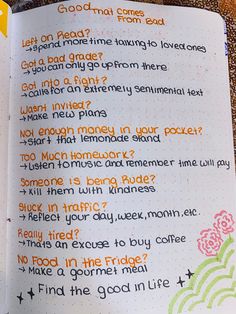 Good that comes
From Bad
Left on Read?
→ spend more time talking to loved ones
Got a bad grade?
→ you can only go up from there
Got into a fight?
→ calls for an extremely sentimental text
Wasnt invited?
→ Make new plans
Not enough money in your pocket?
→ Start that lemonade stand
Too Much Homework?
→ Listen to music and remember time will pay
Someone is being Rude?
→ Kill them with kindness
Stuck in traffic?
→ Reflect your day, week, month, etc.
Really tired?
→ Thats an excuse to buy coffee
No Food in the Fridge?
→ Make a gourmet meal
Find the good in Life